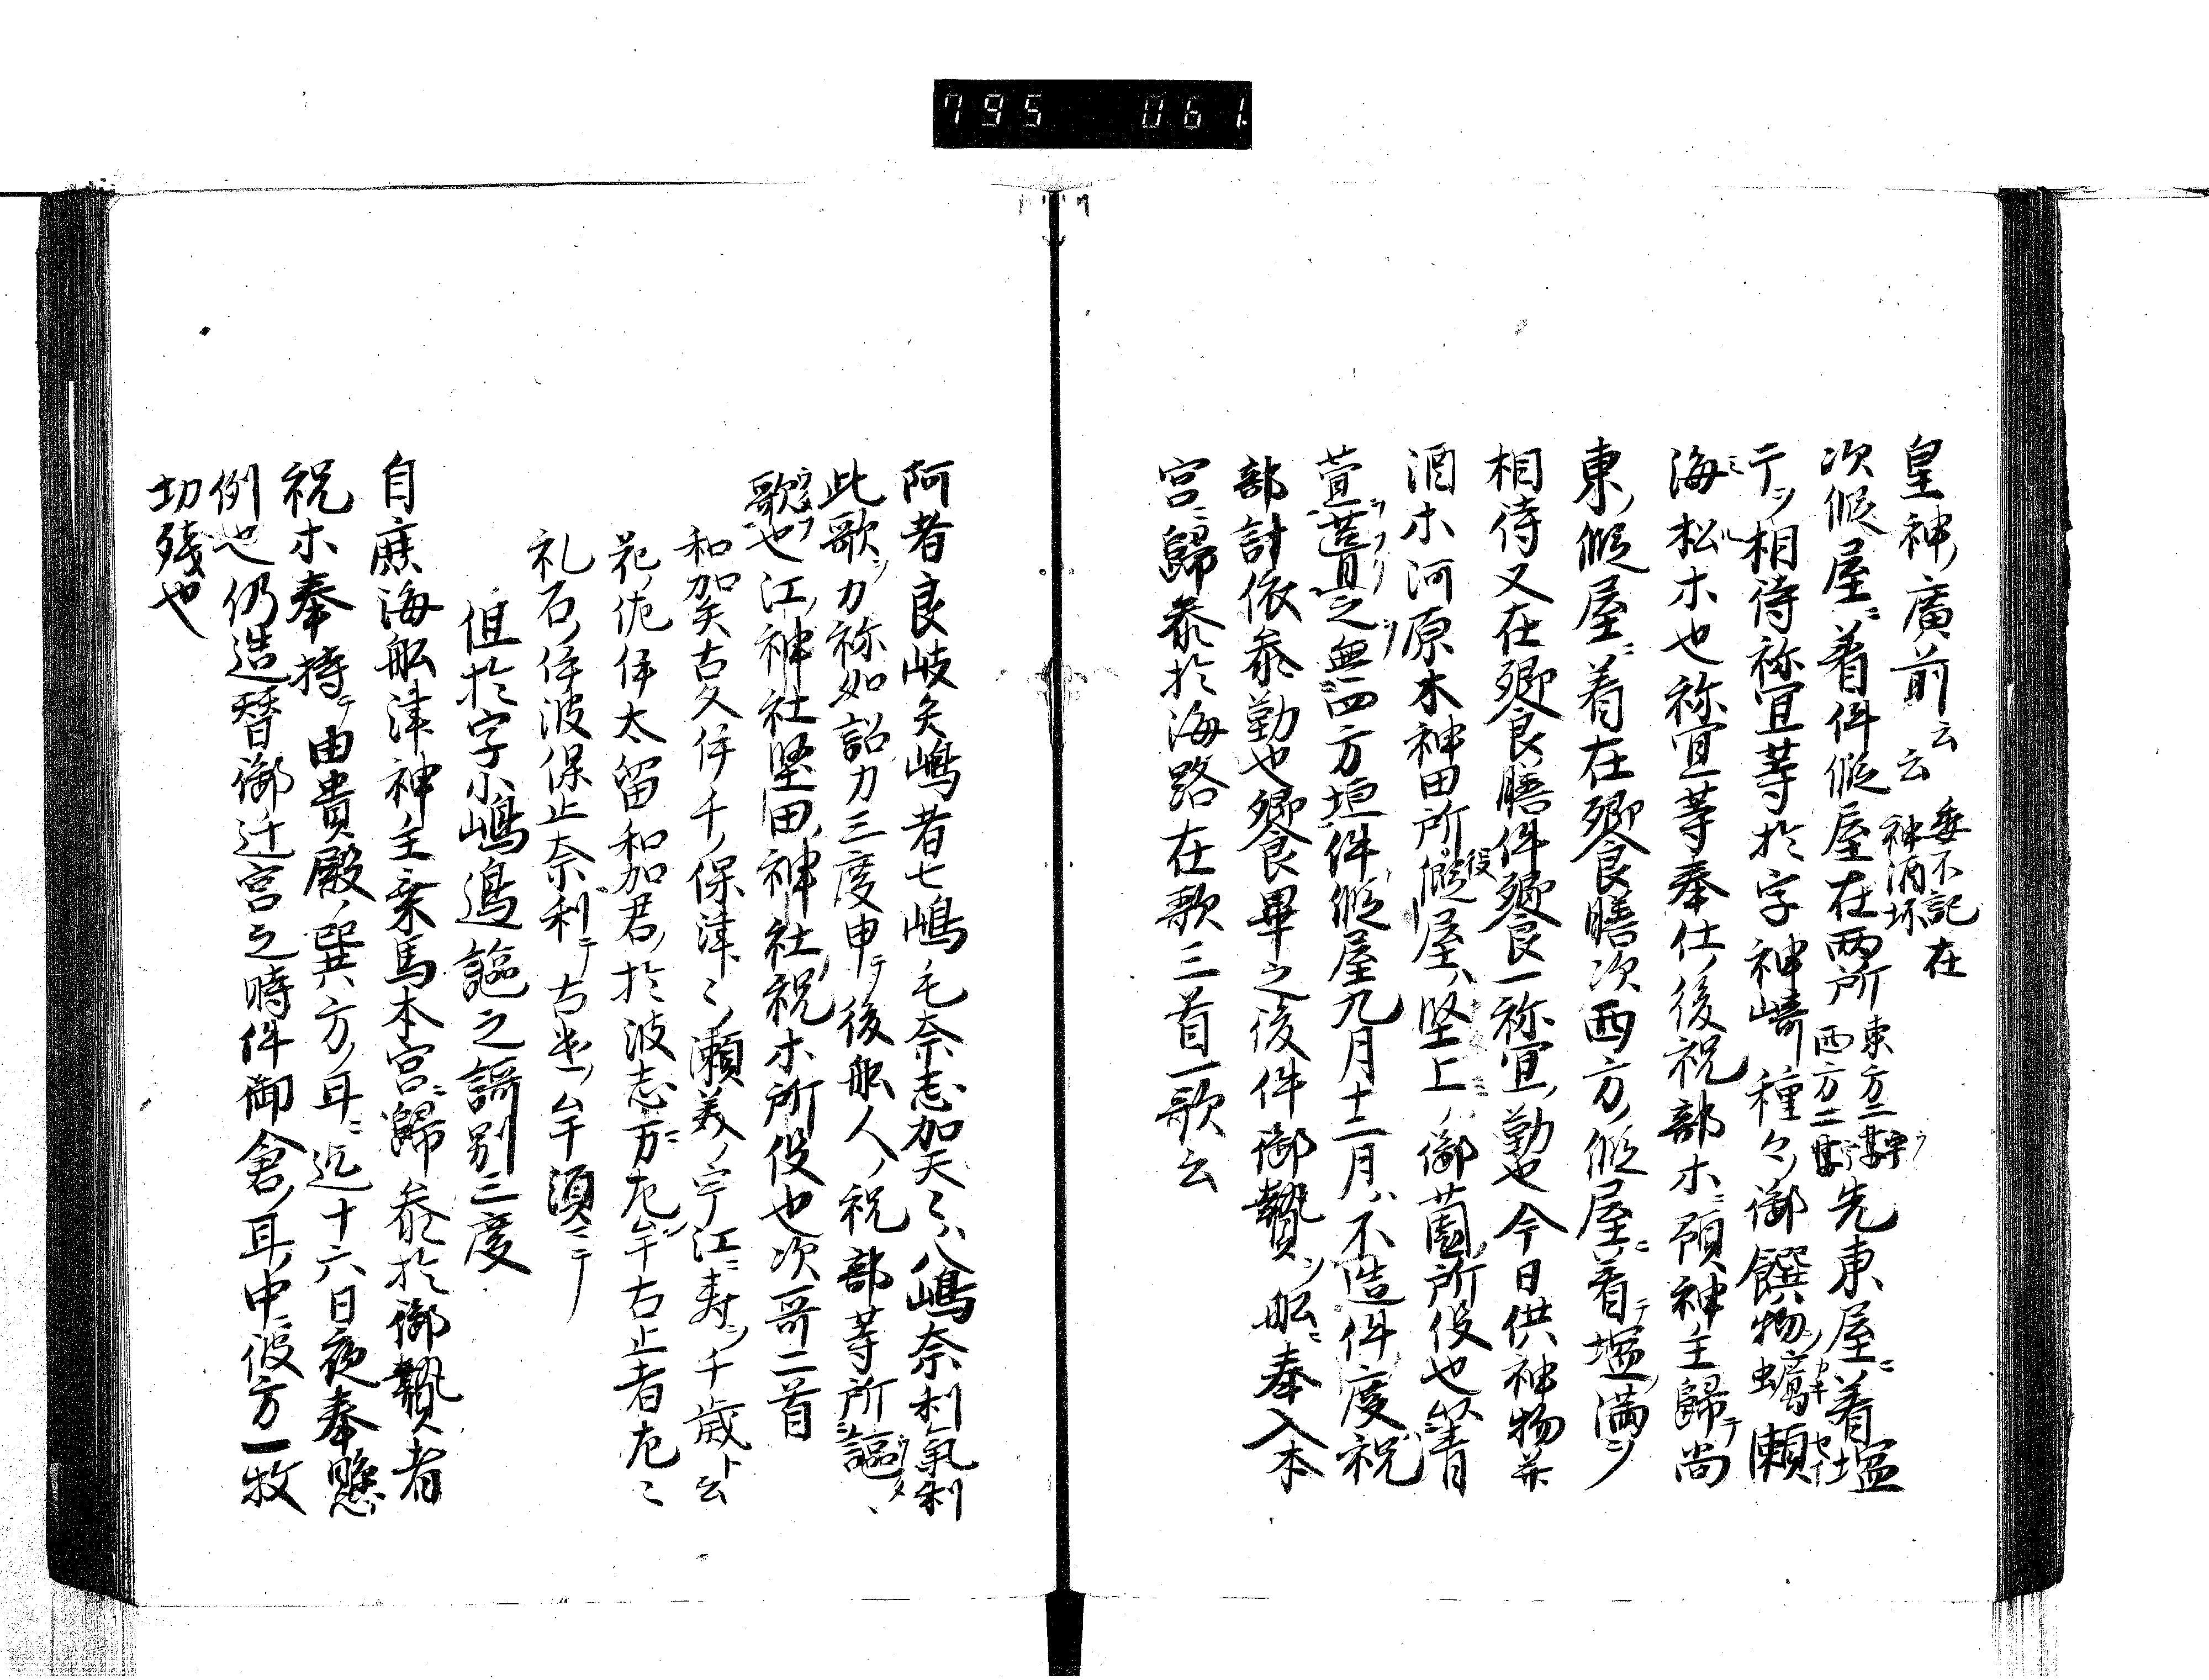 795 061
皇神ノ廣前云云委不記在神酒坏
次假屋ニ着件假屋在両所東方二宇西方二宇先東屋ニ着塩
干ヲ相待祢宜等於字神崎種々ノ御饌物ヲ蠣瀬
海松ホ也祢宜等奉仕ノ後祝部ホニ預神主歸テ尚
東ノ假屋ニ着在饗膳次西方ノ假屋ニ着テ塩ノ満ヲ
相待又在饗膳件饗一祢宜ノ勤也今日供神物并
酒ホ河原木神田所役假屋ハ堅上ノ御薗ノ所役也菁
萱葺之無四方垣件假屋九月十二月ハ不造件度祝
部計依参勤也饗畢之後件御贄ヲ舩ニ奉入本
宮ニ歸参於海路在歌三首一歌云
阿者良岐矢嶋者七嶋ノ毛奈志加天ミハ八嶋奈利氣利
此歌ヲ力祢如詔力三度申テ後舩人ノ祝部等所謳、
歌也江ノ神社堅田ノ神社ノ祝ホ所役也次哥二首
和加矢古久伻千ノ保津ミノ瀬美ノ宇江ニ寿ヲ千歳ト云
花佐伻太留和加君ノ於波志万左牟古止者左ミ
礼石ノ伻波保止奈利テ古牟須ニテ
但於字小嶋邉謳之謌別二度
自庶海舩津神主乗馬本宮ニ歸参於御贄者
祝ホ奉持テ由貴殿ノ巽方ノ耳ニ迄十六日夜奉懸
例也仍造替御迁宮之時件御倉ノ耳ノ中ニ彼方一枚
切残也